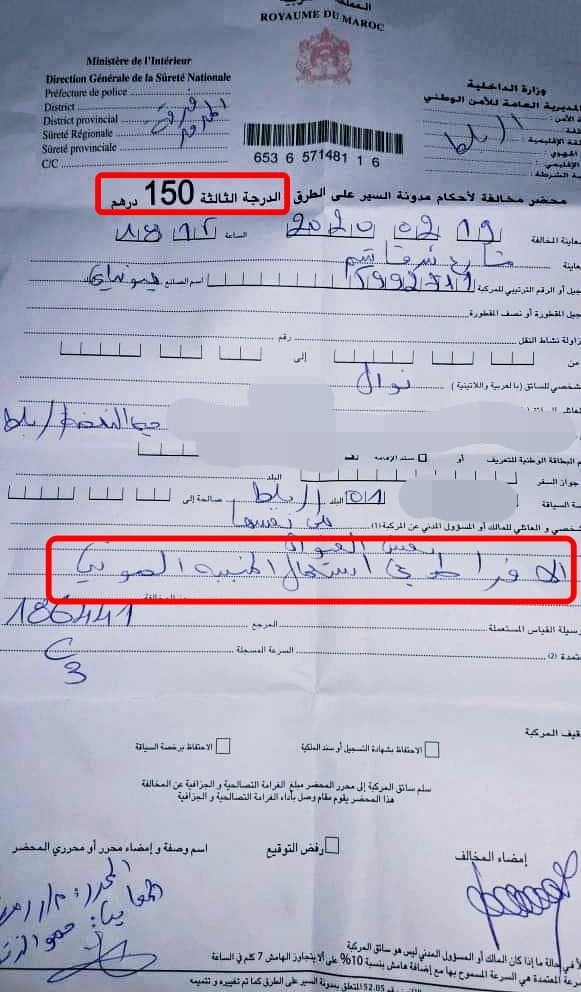 المملكة المغربية
ROYAUME DU MAROC
Ministère de l'Intérieur
Direction Générale de la Sûreté Nationale
Préfecture de police
District
District provincial
Sûreté Régionale
Sûreté provinciale
C/C
فرقة
المرور
وزارة الداخلية
المديرية العامة للأمن الوطني
الرباط
653 6 571481 1 6
محضر مخالفة لأحكام مدونة السير على الطرق الدرجة الثالثة 150 درهم
معاينة المخالفة 19 02 2020 الساعة
أو الرقم الترتيبي للمركبة اسم الصانع هيونداي
المقطورة أو نصف المقطورة
زاولة نشاط النقل رقم
من إلى
شخصي للسائق (بالعربية واللاتينية) نوال
حي النهضة / رباط
البطاقة الوطنية للتعريف أو سند الإقامة
جواز السفر البلد
01 البلد الرباط صالحة إلى
شخصي و العائلي للمالك أو المسؤول المدني عن المركبة (1) هي نفسها
نفس العنوان
الافراط في استعمال المنبه الصوتي
وسيلة القياس المستعملة المرجع 186441
(2) السرعة المسجلة
C3
الاحتفاظ بشهادة التسجيل أو سند الملكية الاحتفاظ برخصة السياقة
سلم سائق المركبة إلى محرر المحضر مبلغ الغرامة التصالحية و الجزافية عن المخالفة
هذا المحضر يقوم مقام وصل بأداء الغرامة التصالحية و الجزافية
إمضاء المخالف رفض التوقيع اسم وصفة و إمضاء محرر أو محرري المحضر
المحرر:
المعاين:
في حالة ما إذا كان المالك أو المسؤول المدني ليس هو سائق المركبة
السرعة المعتمدة هي السرعة المسموح بها مع إضافة هامش بنسبة 10% على ألا يتجاوز الهامش 7 كلم في الساعة
رقم 52.05 المتعلق بمدونة السير على الطرق كما تم تغييره و تتميمه